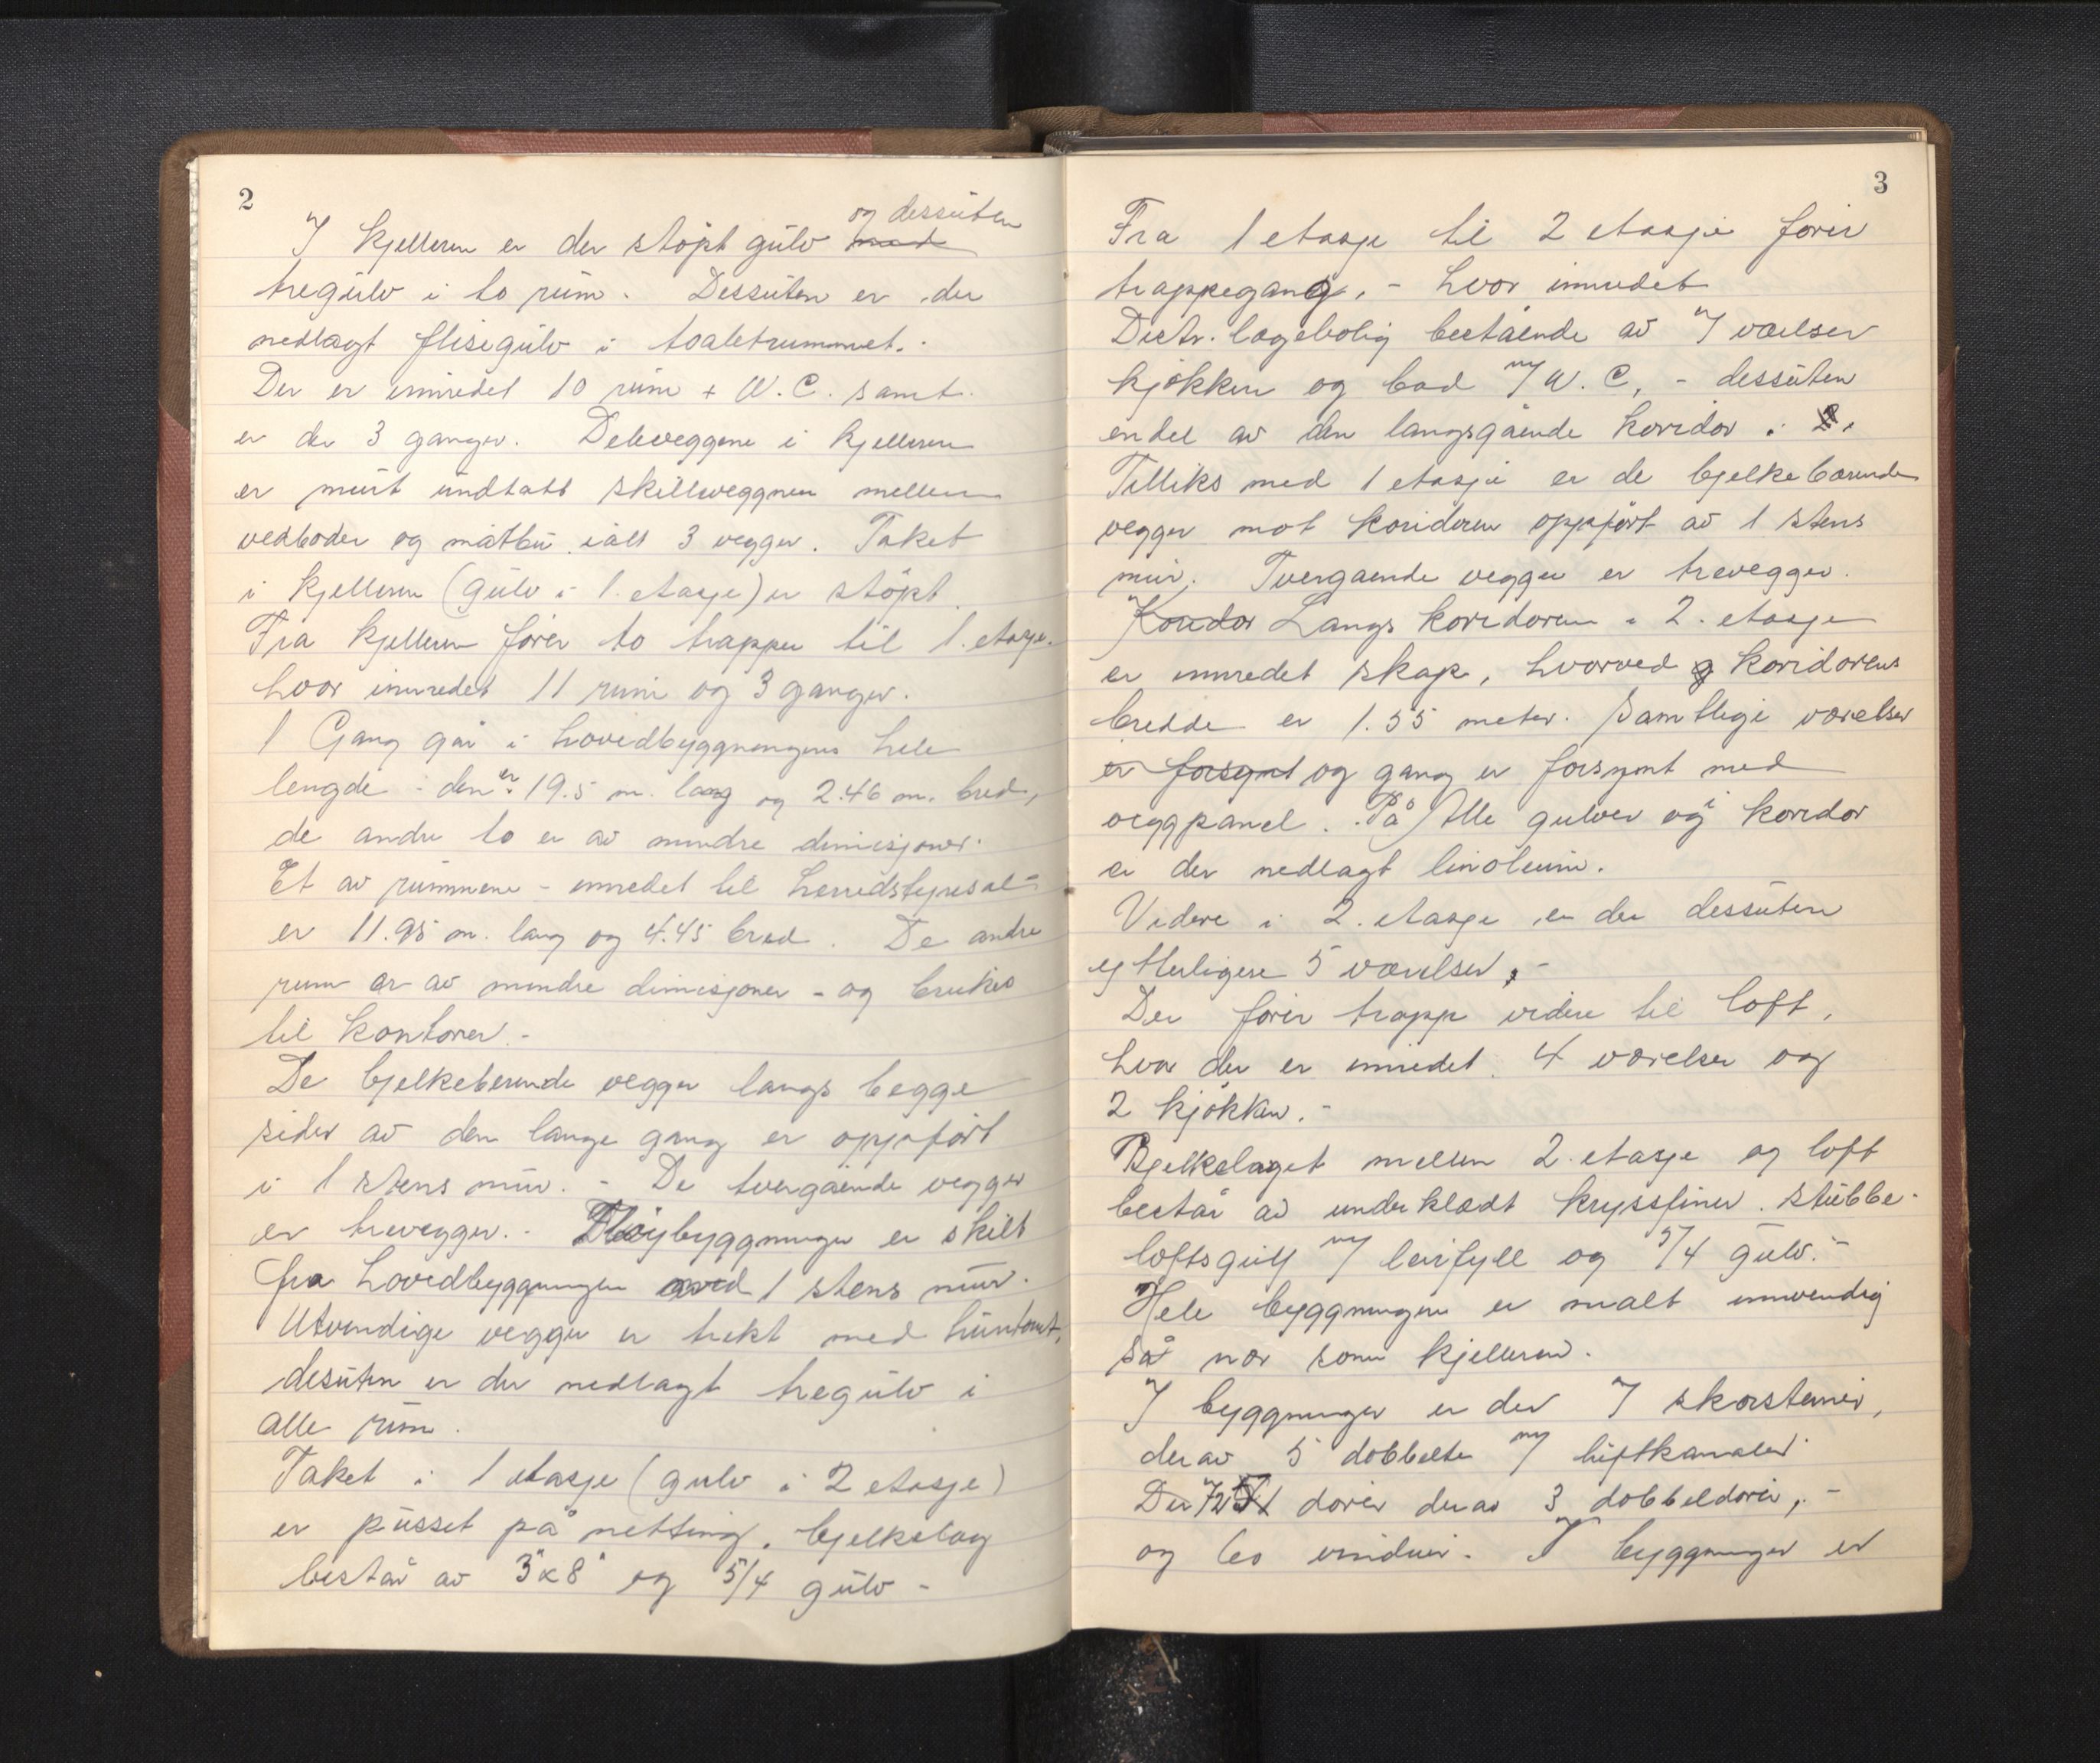 2
og dessuten
I kjelleren er der støpt gulv med
tregulv i to rum. Dessuten er der
nedlagt flisegulv i toaletrummet.
Der er innredet 10 rum + W.C. samt
er der 3 ganger. Deleveggene i kjelleren
er murt undtatt skilleveggnen mellem
vedboder og matbu ialt 3 vegger. Taket
i kjelleren (gulv i 1. etasje) er støpt.
Fra kjelleren fører to trapper til 1. etasje.
hvor innredet 11 rum og 3 ganger.
1 Gang går i hovedbyggningens hele
lengde - den er 19.5 m. lang og 2.46 m. bred,
de andre to er av mindre dimisjoner.
Et av rummene - innredet til herredstyresal -
er 11.95 m. lang og 4.45 bred. De andre
rum er av mindre dimisjoner - og brukes
til kontorer. -
De bjelkeberende vegger langs begge
sider av den lange gang er oppført
i 1 stens mur. - De tvergående vegger
er trevegger. - Fløybyggningen er skilt
fra hovedbyggningen med 1 stens mur.
Utvendige vegger er trekt med huntonit,
desuten er der nedlagt tregulv i
alle rum.
Taket i 1 etasje (gulv i 2 etasje)
er pusset på netting. bjelkelag
består av 3"x8" og 5/4 gulv -
3
Fra 1 etasje til 2 etasje fører
trappegang, - hvor innredet
Distr. lægebolig bestående av 7 værelser
kjøkken og bad m/ W.C, - dessuten
endel av den langsgående koridor.
Tilliks med 1 etasje er de bjelkebærende
vegger mot koridoren oppført av 1 stens
mur. Tvergaende vegger er trevegger.
Koridor Langs koridoren i 2. etasje
er innredet skap, hvorved koridorens
bredde er 1.55 meter. Samtlige værelser
er forsynt og gang er forsynt med
veggpanel. På Alle gulver og i koridor
er der nedlagt linoleum.
Videre i 2. etasje er der dessuten
ytterligere 5 værelser. -
Der fører trapp videre til loft,
hvor der er innredet 4 værelser og
2 kjøkken. -
Bjelkelaget mellem 2. etasje og loft
består av underklædt kryssfiner. stubbe-
loftsgulv m/ leirfyll og 5/4 gulv. -
Hele byggningen er malt innvendig
så nær som kjelleren.
I byggningen er der 7 skorsteiner,
derav 5 dobbelte m/ luftkanaler
Der 72 dører derav 3 dobbeldører, -
og 60 vinduer. I byggningen er